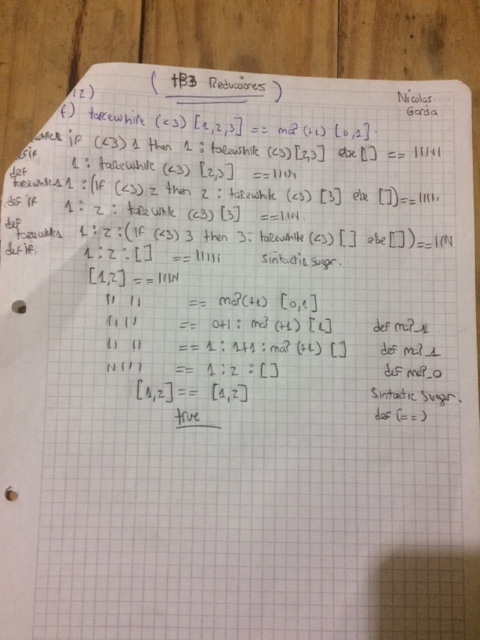 Nicolas
Garcia
( tB3 Reducciones )
12)
f) takewhile (<3) [1,2,3] == map (+1) [0,1].
if (<3) 1 then 1 : takewhile (<3) [2,3] else [] == 11111
def if 1 : takewhile (<3) [2,3] == 1111
def takewhile 1 : (if (<3) 2 then 2 : takewhile (<3) [3] else []) == 1111
def if 1 : 2 : takewhile (<3) [3] == 1111
def takewhile 1 : 2 : (if (<3) 3 then 3 : takewhile (<3) [] else []) == 1111
def if. 1 : 2 : [] == 11111 Sintactic Sugar.
[1,2] == 1111
11 11 == map (+1) [0,1]
11 11 == 0+1 : map (+1) [1] def map_1
11 11 == 1 : 1+1 : map (+1) [] def map_1
11 11 == 1 : 2 : [] def map_0
[1,2] == [1,2] Sintactic Sugar.
true def (==)